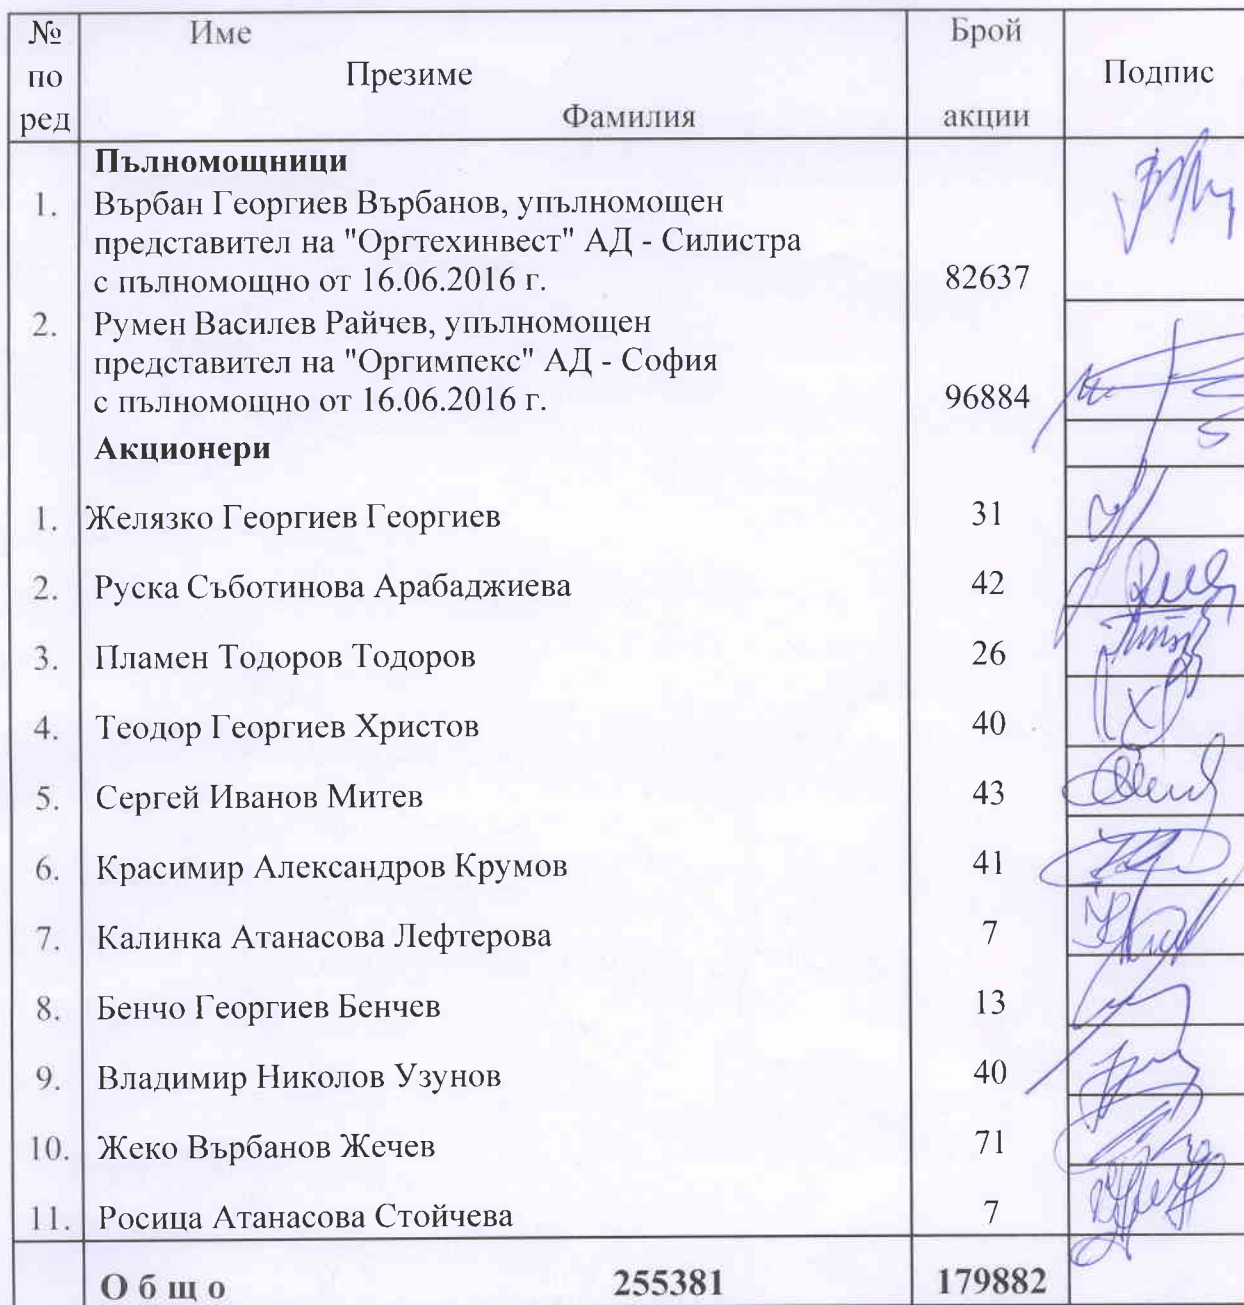 №
по
ред
Име
Презиме
Фамилия
Брой
акции
Подпис
Пълномощници
1. Върбан Георгиев Върбанов, упълномощен
представител на "Оргтехинвест" АД - Силистра
с пълномощно от 16.06.2016 г. 82637
2. Румен Василев Райчев, упълномощен
представител на "Оргимпекс" АД - София
с пълномощно от 16.06.2016 г. 96884
Акционери
1. Желязко Георгиев Георгиев 31
2. Руска Съботинова Арабаджиева 42
3. Пламен Тодоров Тодоров 26
4. Теодор Георгиев Христов 40
5. Сергей Иванов Митев 43
6. Красимир Александров Крумов 41
7. Калинка Атанасова Лефтерова 7
8. Бенчо Георгиев Бенчев 13
9. Владимир Николов Узунов 40
10. Жеко Върбанов Жечев 71
11. Росица Атанасова Стойчева 7
О б щ о 255381 179882